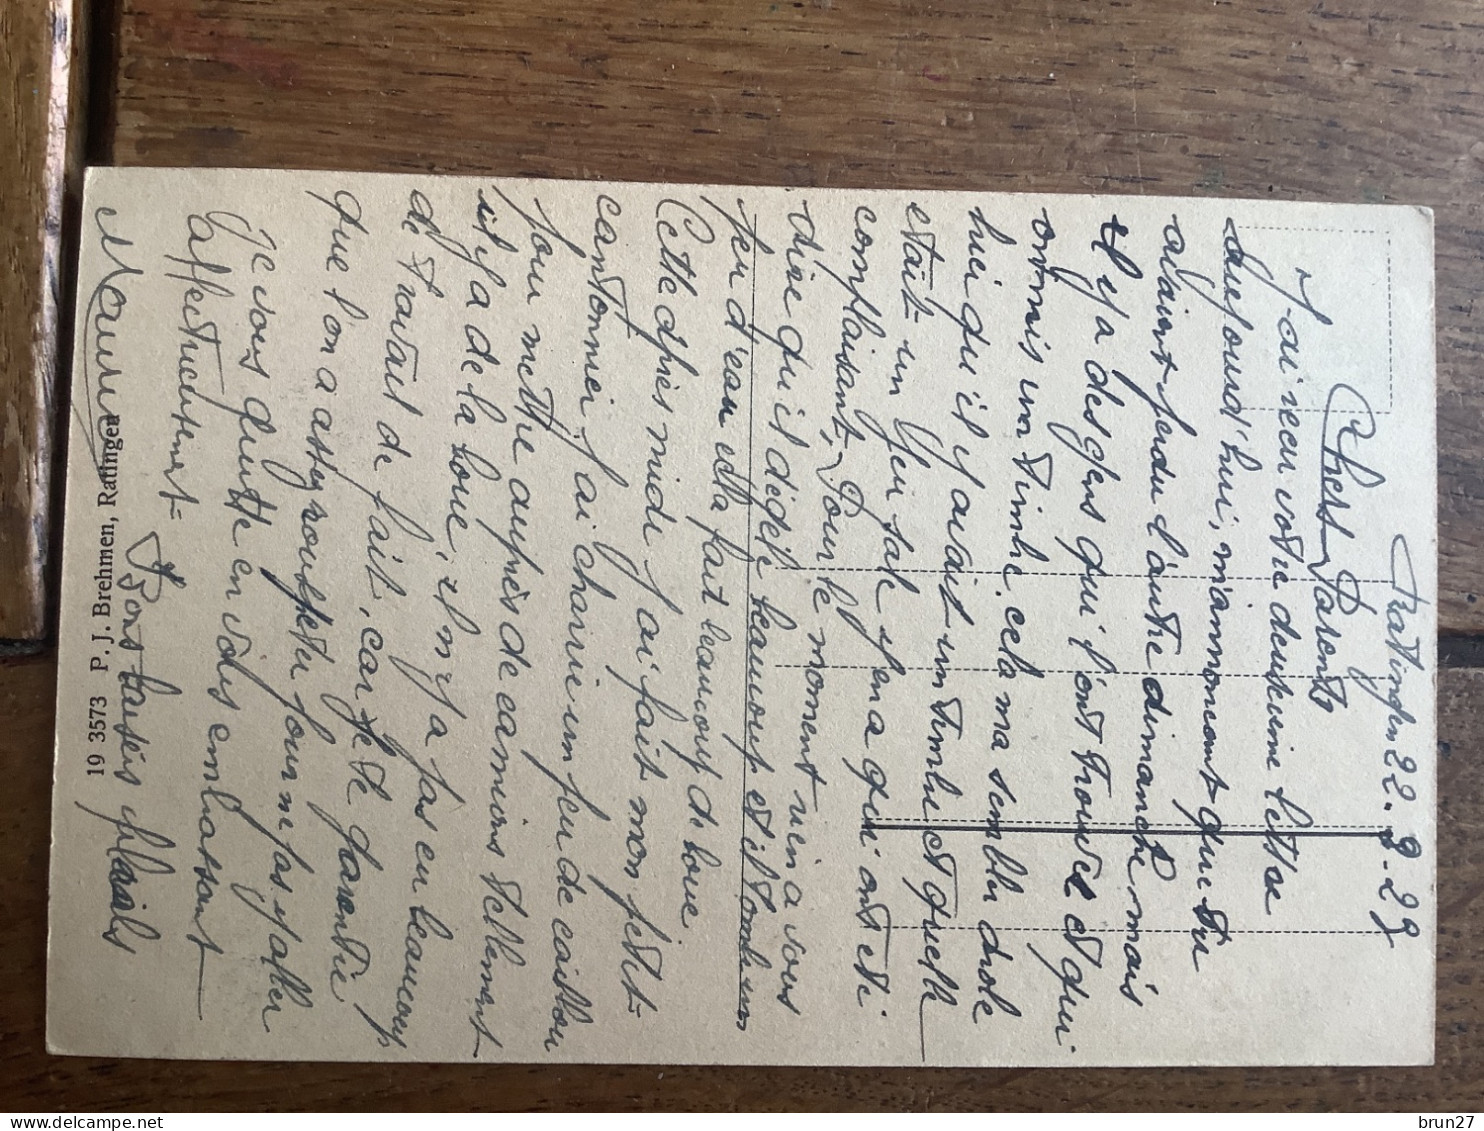 Ratingen 22.2.23
Chers Parents
J'ai recu votre deuxieme lettre
aujourd'hui, m'annoncant que tu
avaient perdu l'autre dimanche mais
il y a des gens qui l'ont trouvé et qui
ont mis un timbre, cela ma semblu drole
hier qu'il y avait un timbre et quelle
etait un peu sale y en a qui ont eté
complaisant, Pour le moment rien a vous
dire qu'il dégèle beaucoup et il tombe un
peu d'eau cela fait beaucoup de boue
Cette après midi j'ai fait mon petit-
cantonnier j'ai charrié un peu de caillou
pour mettre auprès de camions tellement
il y a de la boue, il n'y a pas eu beaucoup
de travail de fait, car je te garantie
que l'on a assez rouspetu pour ne pas y aller
Je vous quitte en vous embrassant
affectueusement- Bons baisers
Maurice
19 3573 P. J. Brehmen, Ratingen
brun27